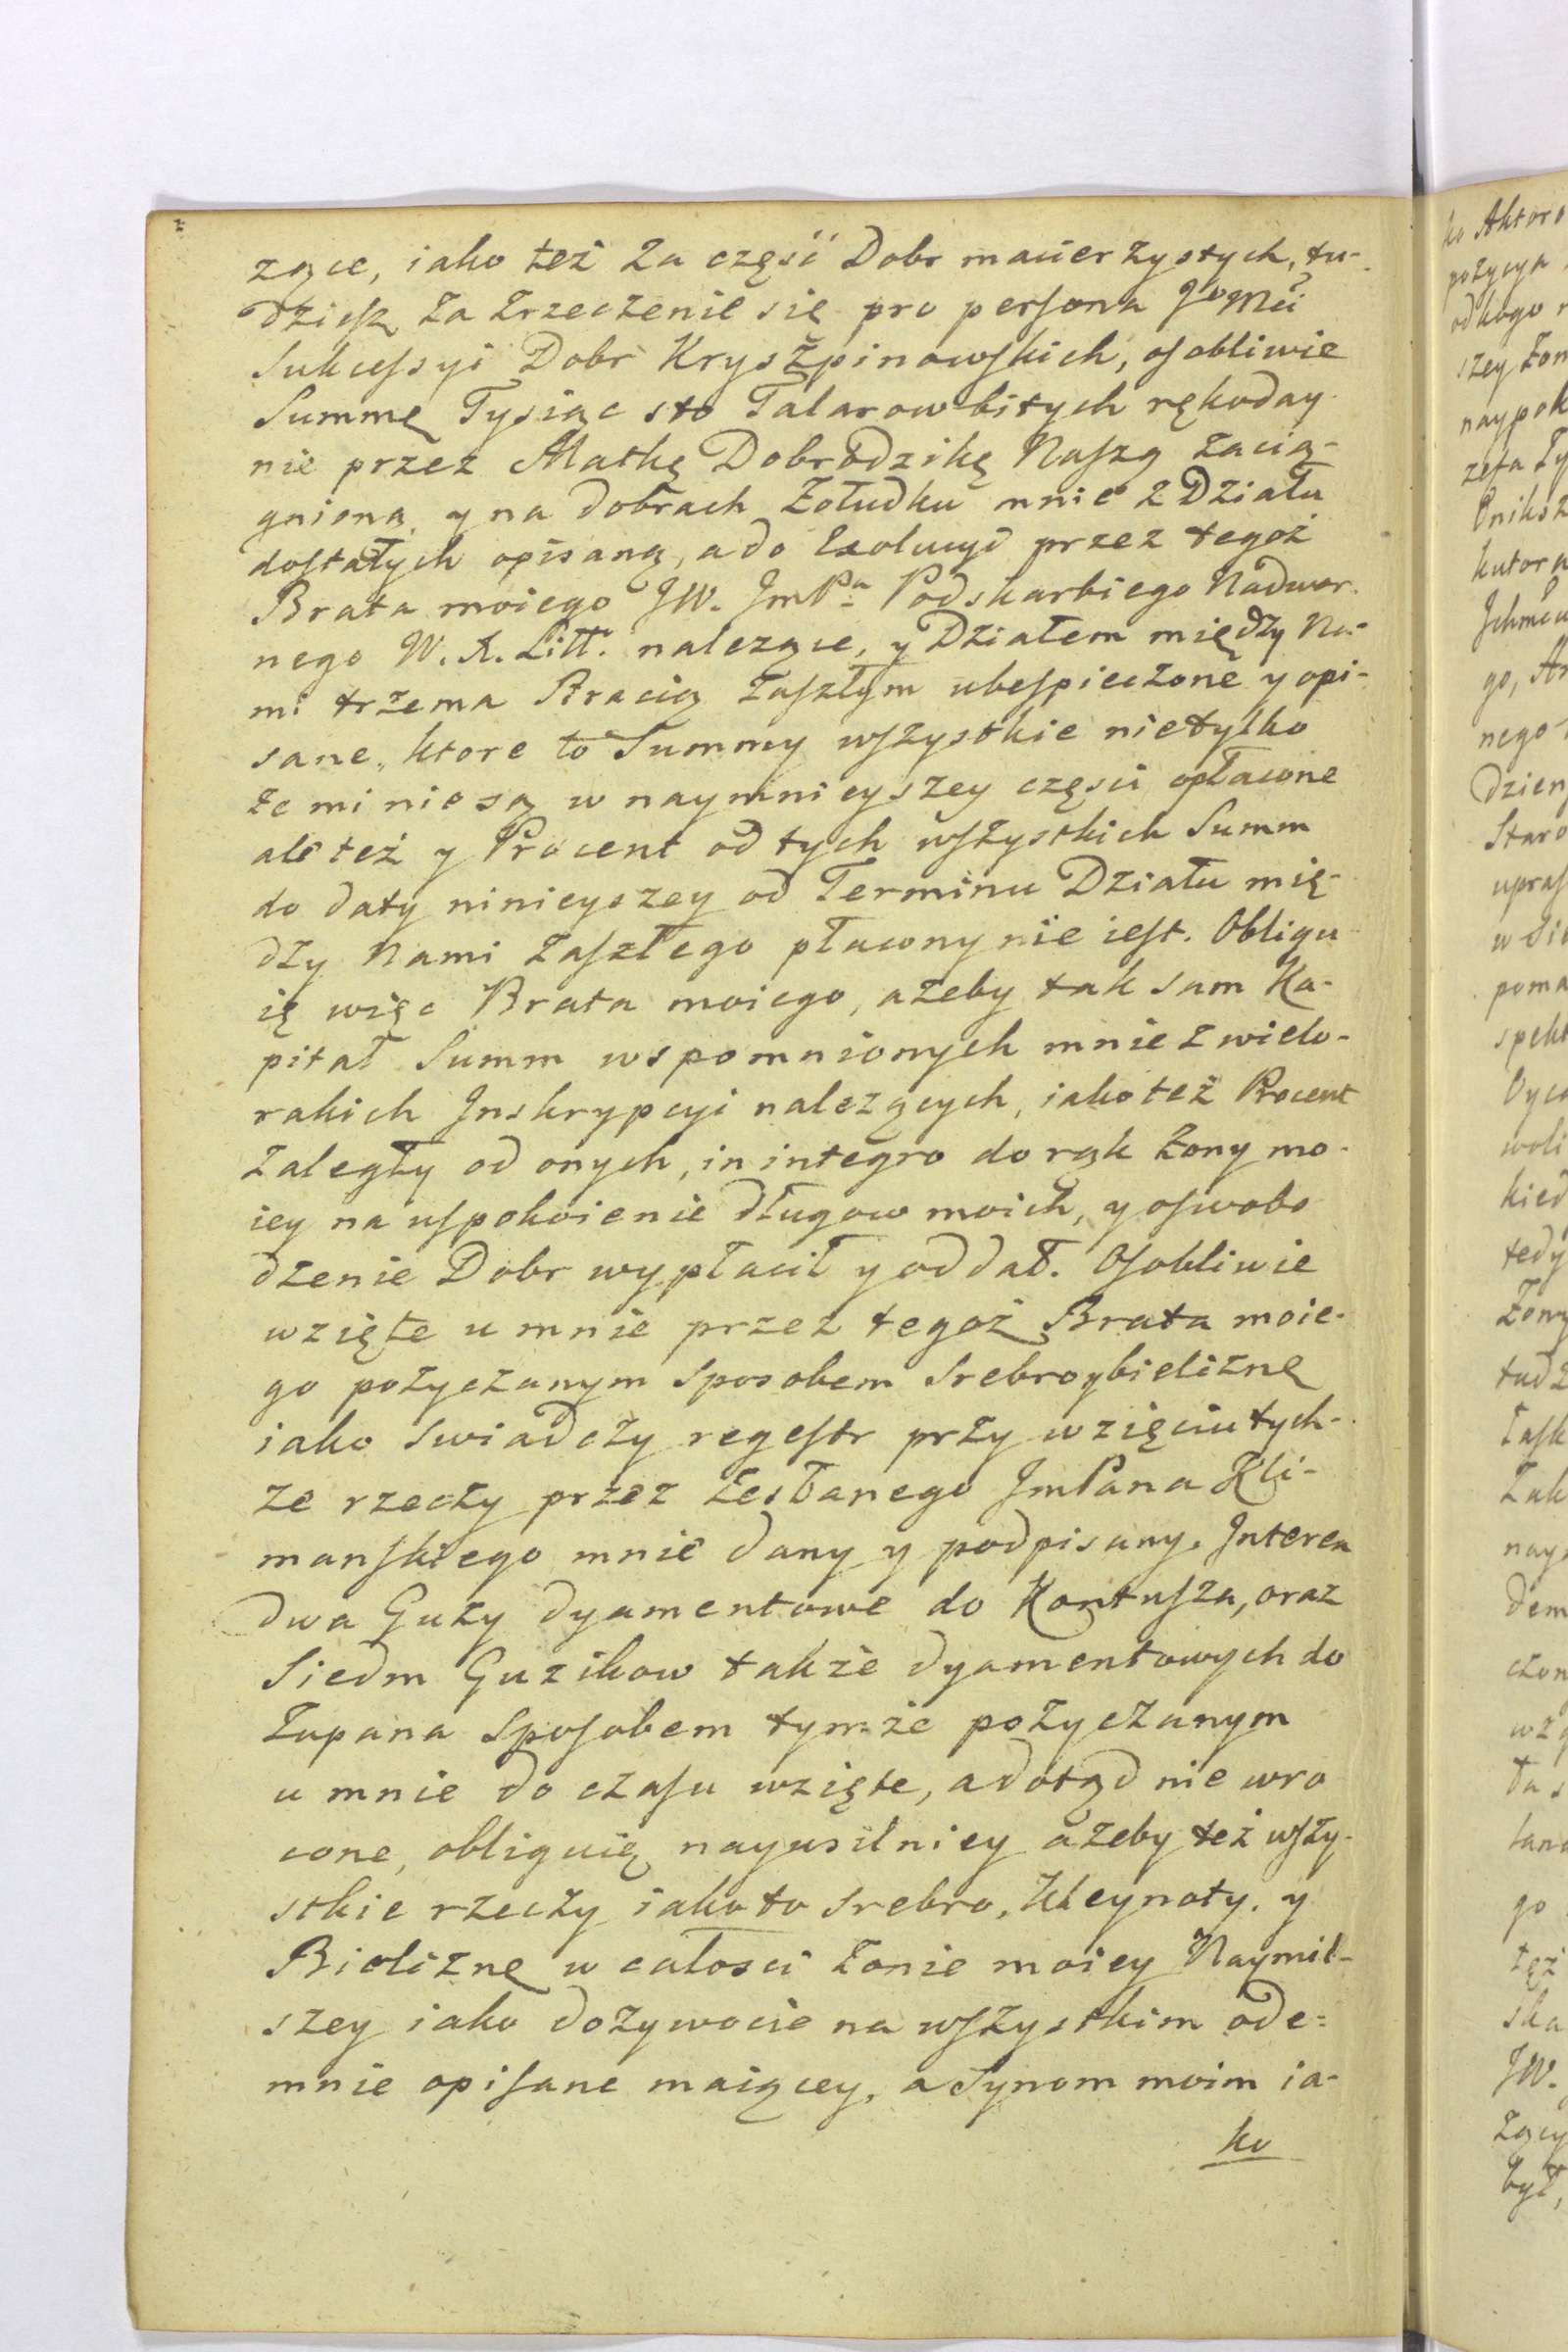 zące, iako też za część Dobr macierzystych, tu-
dziesz za zrzeczenie się pro persona JoMci
Sukcessyi Dobr Kryszpinowskich, osobliwie
Summę Tysiąc sto Talarow bitych rękoday-
nie przez Matkę Dobrodziką Naszą zacią-
gnioną, y na dobrach Żołudku mnie z Działu
dostałych opisaną, a do Exolucyi przez tegoż
Brata moiego JW. JmPa Podskarbiego Nadwor-
nego W. X. Litt: nalezące, y Działem między Na-
mi trzema Bracią zaszłym ubespieczone y opi-
sane, ktore to Summy wszystkie nietylko
że mi nie są w naymnieyszey części opłacone
ale też y Procent od tych wszystkich Summ
do daty ninieyszey od Terminu Działu mię-
dzy Nami zaszłego płacony nie iest. Obligu
ię więc Brata moiego, ażeby tak sam Ka-
pitał Summ wspomnionych mnie z wielo-
rakich Inskrypcyi nalezących, iako też Procent
zaległy od onych, in integro do rąk Żony mo-
iey na uspokoienie długow moich, y oswobo
dzenie Dobr wypłacił y oddał. Osobliwie
wzięte u mnie przez tegoż Brata moie-
go pożyczanym sposobem Srebro y bieliznę
iako swiadczy regestr przy wzięciu tych-
że rzeczy przez zesłanego JmPana Kli-
manskiego mnie dany y podpisany. Interea
dwa Guzy dyamentowe do Kontusza, oraz
Siedm Guzikow także dyamentowych do
Żupana sposobem tymże pożyczanym
u mnie do czasu wzięte, a dotąd nie wro
cone, obliguię nayusilniey ażeby też wszy-
stkie rzeczy iako to Srebro, Kleynoty, y
Bieliznę w całosci Żonie moiey Naymil-
szey iako dożywocie na wszystkim ode=
mnie opisane maiącey, a Synom moim ia-
ko
ko Aktoro
pożycya
od kogo
szey Żon
naypok
Onikszt
kutora
go,
nego
dzien
Staro
upras
poma
spekt
Oyco
woli
kied
tedy
Żony
tudz
Łask
nay
dem
czon
go
JW.
był,